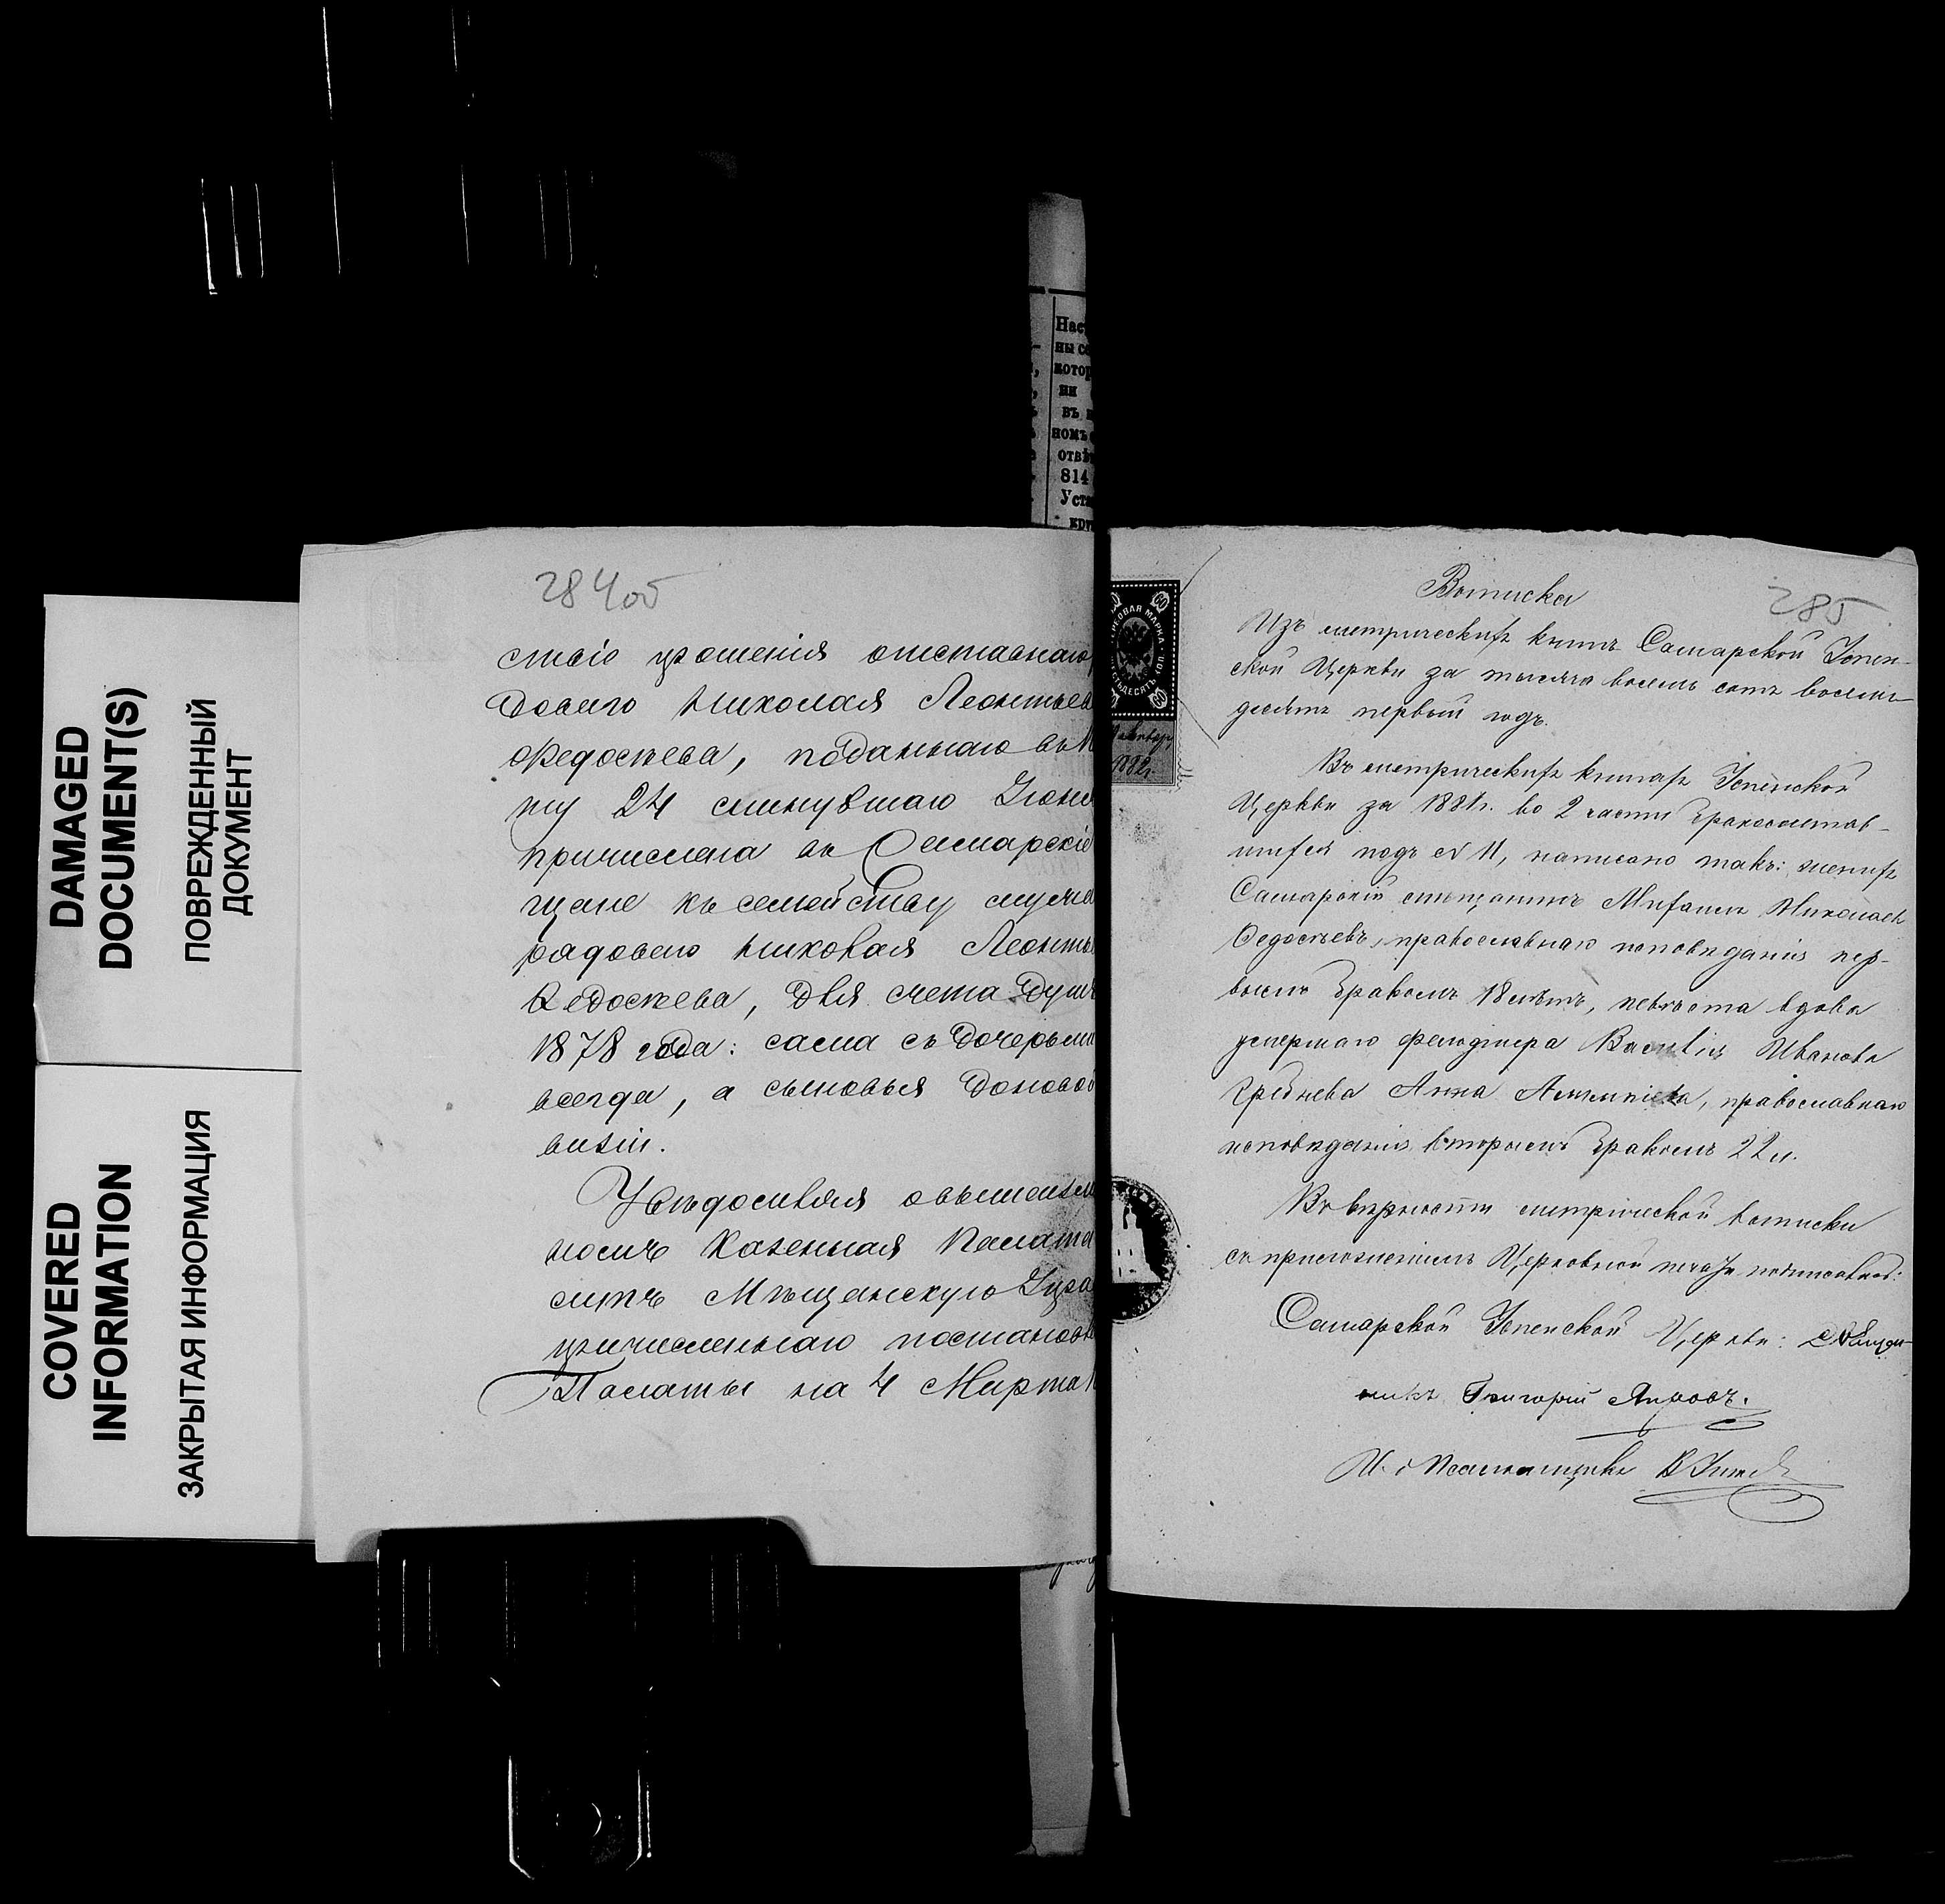 DAMAGED
DOCUMENT(S)
ПОВРЕЖДЕННЫЙ
ДОКУМЕНТ
COVERED
INFORMATION
ЗАКРЫТАЯ ИНФОРМАЦИЯ
Нас
ны со
котор
ни
въ
номъ
отвѣ
814
Уст
кру
284об
ствіе прошенія отставнаго
доваго Николая Леонтьев
Федосѣева, поданнаго въ
ту 24 минувшаго Іюня
причислена въ Самарскіе
щане къ семейству
рядоваго Николая Леонть
Ѳедосѣева, для счета душъ
1878 года: сама съ дочерьми
всегда, а сыновья до новой
визіи.
Увѣдомляя о вышеизл
номъ Казенная Палата
ситъ Мѣщанскую Упра
причисленнаго постановл
Палаты на 4 Марта
285
Выписка
Изъ метрическихъ книгъ Самарской Успен-
ской Церкви за тысяча восемь сотъ восемь-
десятъ первый годъ.
Въ метрическихъ книгахъ Успенской
Церкви за 1881г. во 2 части бракосочетав-
шихся подъ № 11, написано такъ: женихъ
Самарскій мѣщанинъ Михаилъ Николаев
Ѳедосѣевъ, православнаго исповѣданія пер-
вымъ бракомъ 18 лѣтъ, невѣста вдова
умершаго фельдшера Василія Иванова
Гребнева Анна, православнаго
исповѣданія вторымъ бракомъ 22 л.
Въ вѣрности метрической выписки
съ приложеніемъ Церковной печати подписались:
Самарской Успенской Церкви: Священ-
никъ Григорій
И. д. Псаломщика В.
РБОВАЯ МАРКА
СТЬДЕСЯТЪ КОП.
60
Января
1882г.